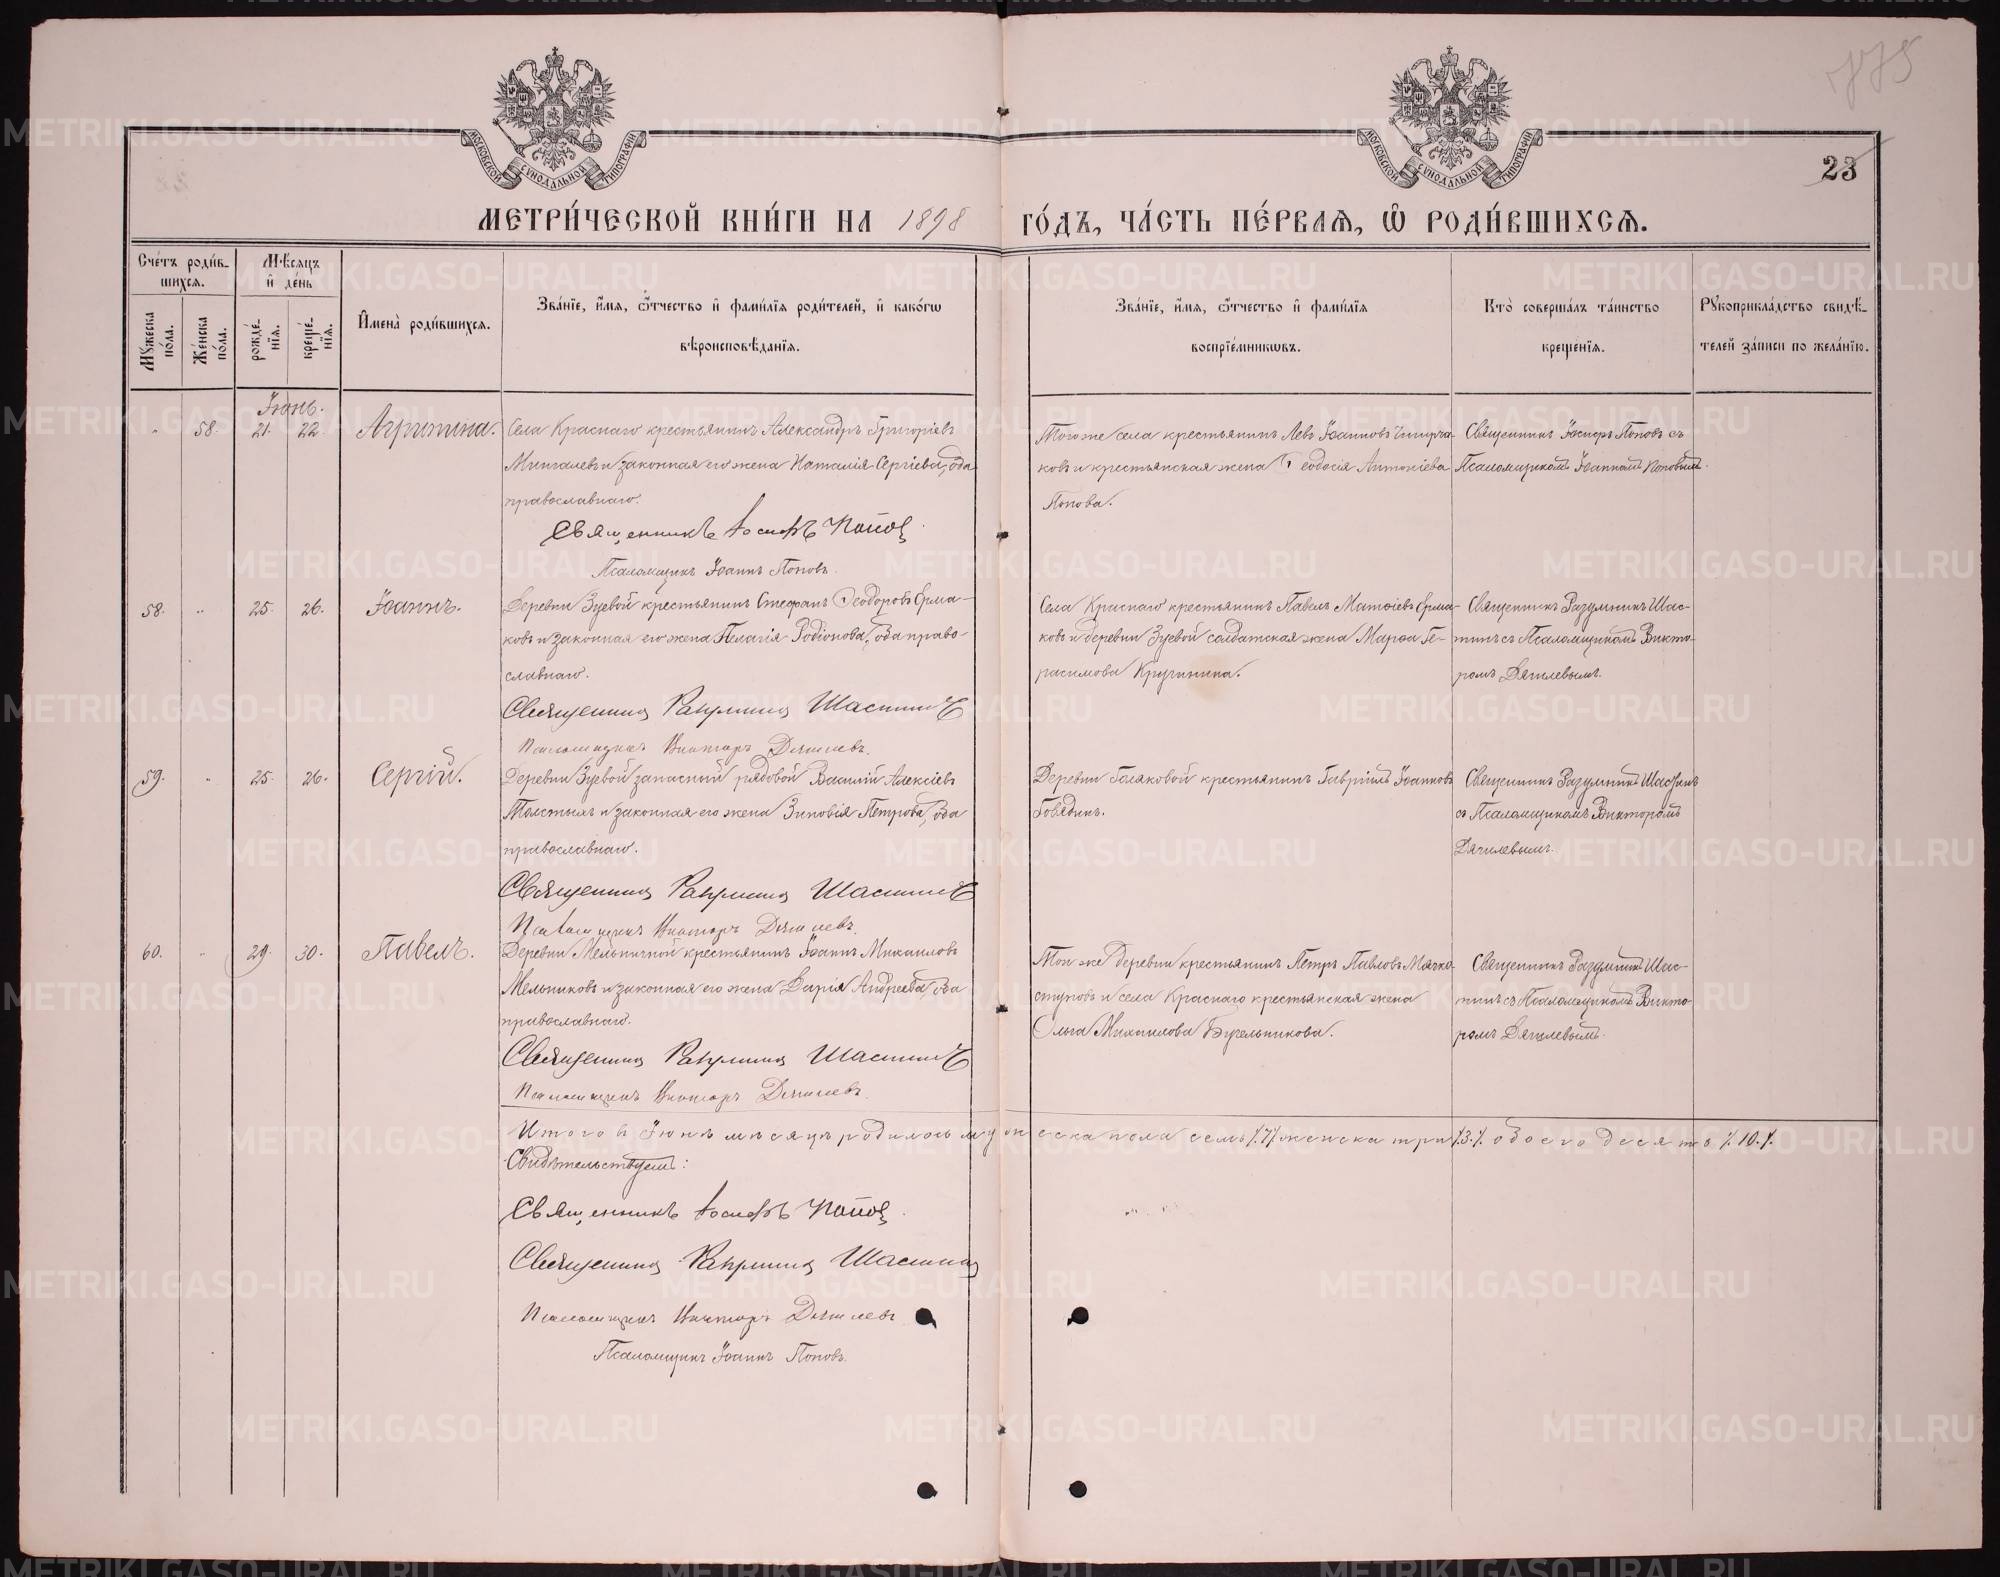 775
23
МОСКОВСКОЙ СѴНОДАЛЬНОЙ ТИПОГРАФІИ
МОСКОВСКОЙ СѴНОДАЛЬНОЙ ТИПОГРАФІИ
МЕТРИ́ЧЕСКОЙ КНИ́ГИ НА 1898 ГО́ДЪ, ЧА́СТЬ ПЕ́РВАЯ, Ѽ РОДИ́ВШИХСЯ.
Сче́тъ роди́в-
шихся.
Мѣ́сяцъ
и҆ де́нь
Мꙋ́жеска по́ла.
Же́нска по́ла.
рожде́-нїя.
креще́-нїя.
И҆мена̀ роди́вшихся.
Зва́нїе, и҆́мя, ѻ҆́тчество и҆ фами́лїя роди́телей, и҆ како́гѡ
вѣроисповѣ́данїя.
Зва́нїе, и҆́мя, ѻ҆́тчество и҆ фами́лїя
воспрїе́мникѡвъ.
Кто̀ соверша́лъ та́инство
креще́нїя.
Рꙋкоприкла́дство свидѣ́-
телей за́писи по жела́нїю.
Іюнь.
58. 21. 22. Агрипина.
Села Краснаго крестьянинъ Александръ Григоріевъ
Мингалевъ и законная его жена Наталія Сергіева, оба
православнаго.
Священникъ Іосифъ Попов
Псаломщикъ Іоаннъ Поповъ.
Того же села крестьянинъ Левъ Іоанновъ
и крестьянская жена Ѳеодосія Антоніева
Попова.
Священникъ Іосифъ Поповъ съ
Псаломщикомъ Іоанномъ Поповымъ.
58. 25. 26. Іоаннъ.
Деревни Зуевой крестьянинъ Стефанъ Ѳеодоровъ Ерма-
ковъ и законная его жена Пелагія Родіонова, оба право-
славнаго.
Священникъ Разумникъ Шастинъ
Псаломщикъ Викторъ Дягилевъ.
Села Краснаго крестьянинъ Павелъ Матѳіевъ Ерма-
ковъ и деревни Зуевой солдатская жена Марѳа Ге-
расимова Кручинина.
Священникъ Разумникъ Шас-
тинъ съ Псаломщикомъ Викто-
ромъ Дягилевымъ.
59. 25. 26. Сергій.
Деревни Зуевой запасный рядовой Василій Алексіевъ
Толстыхъ и законная его жена Зиновія Петрова, оба
православнаго.
Священникъ Разумникъ Шастинъ
Псаломщикъ Викторъ Дягилевъ.
Деревни Голяковой крестьянинъ Гавріилъ Іоанновъ
Говядинъ.
Священникъ Разумникъ Шастинъ
съ Псаломщикомъ Викторомъ
Дягилевымъ.
60. 29. 30. Павелъ.
Деревни Мельничной крестьянинъ Іоаннъ Михаиловъ
Мельниковъ и законная его жена Дарія Андреева, оба
православнаго.
Священникъ Разумникъ Шастинъ
Псаломщикъ Викторъ Дягилевъ.
Той же деревни крестьянинъ Петръ Павловъ Мягко-
ступовъ и села Краснаго крестьянская жена
Ольга Михаилова Бузельникова.
Священникъ Разумникъ Шас-
тинъ съ Псаломщикомъ Викто-
ромъ Дягилевымъ.
Итого въ Іюнѣ мѣсяцѣ родилось мужеска пола семь /7/ женска три /3./ обоего десять /.10./.
Свидѣтельствуемъ:
Священникъ Іосифъ Попов.
Священникъ Разумникъ Шастинъ
Псаломщикъ Викторъ Дягилевъ
Псаломщикъ Іоаннъ Поповъ.